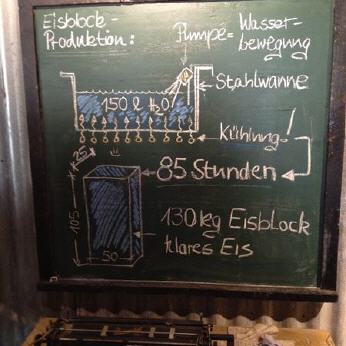 Eisblock-
Produktion:
Pumpe = Wasser-
bewegung
Stahlwanne
150 l H2O
Kühlung!
25
85 Stunden
105
130kg Eisblock
klares Eis
50